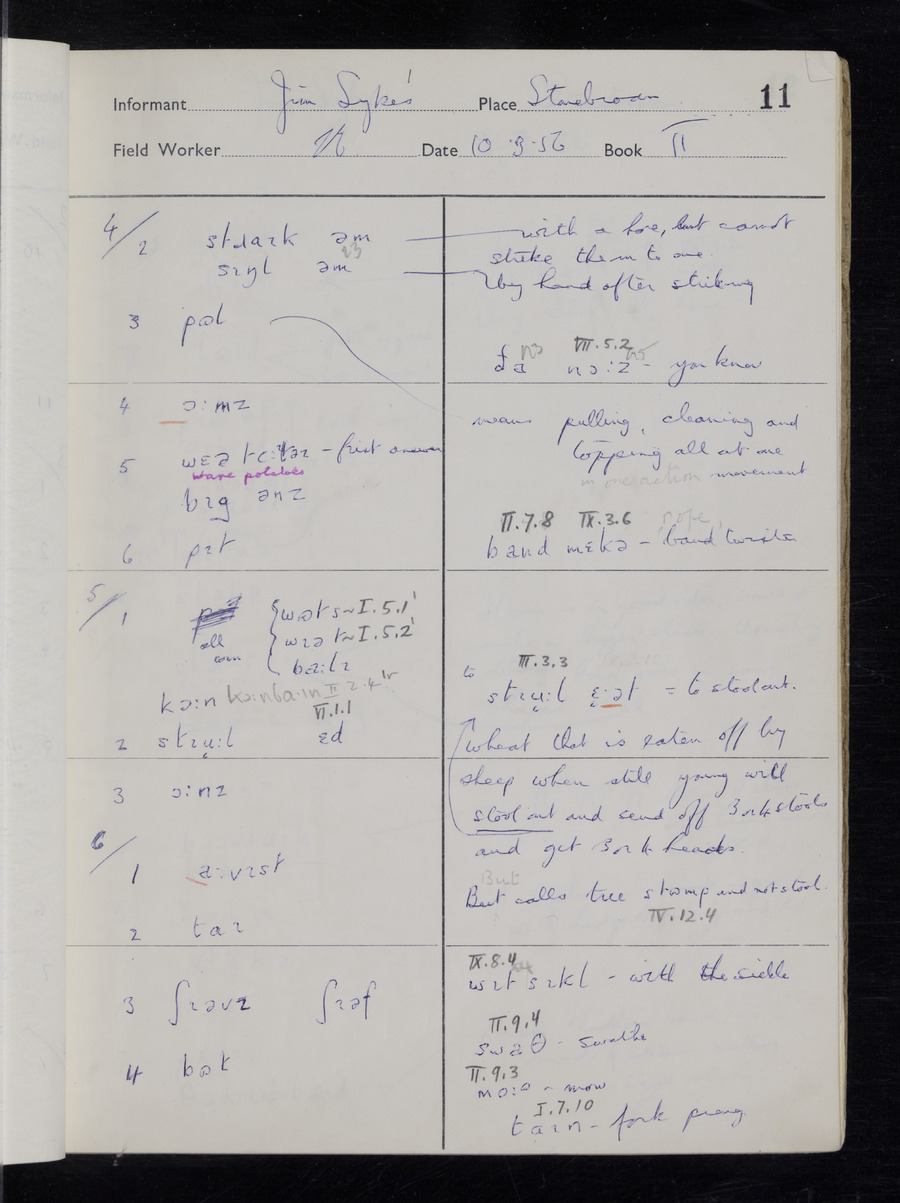 Informant Jim Sykes Place 11
Field Worker Date 10.9.56 Book II
4/2 stɹaɪk əm
sɪŋl əm
3
4 ɔ:mz
5 – first answer
ware potatoes
bɪg ənz
6 pɪt
5/1
all corn
wɒts ~ I.5.1
wɪət ~ I.5.2
ba:lɪ
kɔ:n
VI.1.1
2 ɛd
3 ɔ:nz
6/1 a:vɪst
2 taɪ
3 ʃɪəvz ʃɪəf
4 bɒt
with a hoe, but cannot
strike them to one.
by hand after striking
VII.5.2
nɔ:z – you know
means pulling, cleaning and
topping all at one
in one action movement
II.7.8 IX.3.6 rope
band mɛkə – band twister
to III.3.3
= to stool out.
wheat that is eaten off by
sheep when still young will
stool out and send off 3 or 4 stools
and get 3 or 4 heads.
But
But calls tree stɒmp and not stool.
IV.12.4
IX.8.4
wɪt sɪkl – with the sickle
II.9.4
swaθ – swathe
II.9.3
– mow
I.7.10
taɪn – fork prong